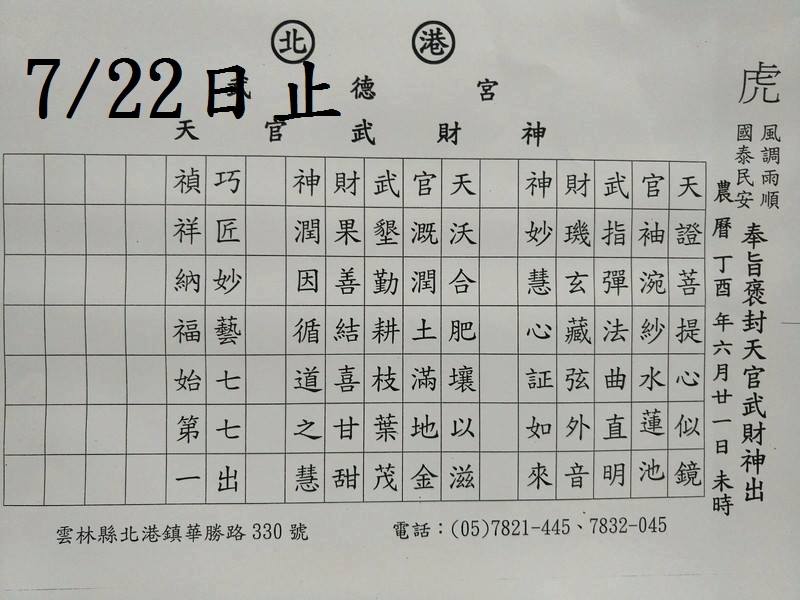 7/22日止
北港
武德宮
天官武財神
虎
風調雨順
國泰民安
奉旨褒封天官武財神出
農曆丁酉年六月廿一日 未時
天證菩提心似鏡
官袖涴紗水蓮池
武指彈法曲直明
財璣玄藏弦外音
神妙慧心証如來
天沃合肥壤以滋
官溉潤土滿地金
武墾勤耕枝葉茂
財果善結喜甘甜
神潤因循道之慧
巧匠妙藝七七出
禎祥納福始第一
雲林縣北港鎮華勝路330號
電話：(05)7821-445、7832-045